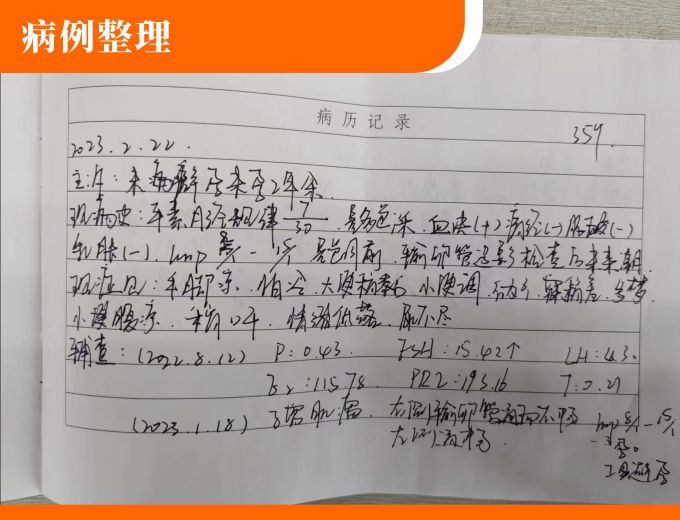 病例整理
病历记录
359.
2023.2.22.
主诉：未避孕未孕2年余.
现病史：平素月经规律 7/30 . 量多色深. 血块(+) 痛经(-) 腰酸(-)
乳胀(-). lmp 8/1 - 15/1 量色同前. 输卵管造影检查后未来潮.
现症见：手脚凉. 怕冷. 大便 小便调. 多梦.
小腹凉. 稍口干. 情绪低落. 尿不尽
辅查：(2022.8.12) P：0.43. FSH：15.42↑ LH：4.30
E2：115.78 PRL：193.16 T：0.21
(2023.1.18) 子宫肌瘤. 输卵管通而不畅 lmp 8/1 - 15/1
工具避孕